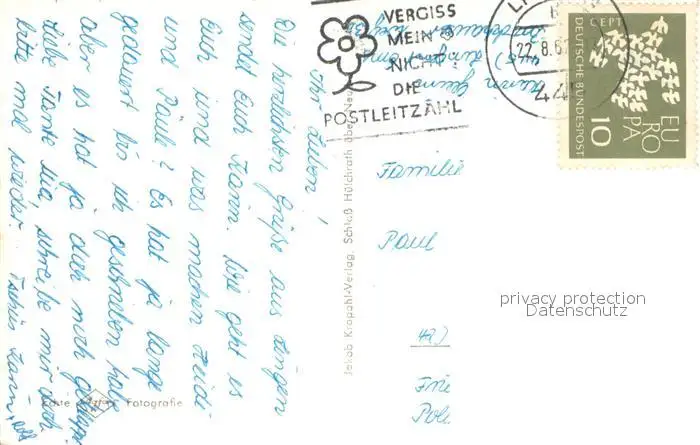 Ihr Lieben,
Die herzlichsten Grüße aus Lingen
sendet Euch Jann. Wie geht es
Euch und was machen Heidi
und Paule? Es hat ja lange
gedauert bis ich geschrieben habe
aber es hat ja doch noch geklappt
Liebe Tante Mia, schreibe mir doch
bitte mal wieder. Tschüs Jann,
VERGISS
MEIN
NICHT
DIE
POSTLEITZAHL
22.8.6
CEPT
DEUTSCHE BUNDESPOST
EUROPA
10
Familie
Paul
Jakob Krapohl-Verlag, Schloß Hülchrath über Neu
privacy protection
Datenschutz
Echte Fotografie